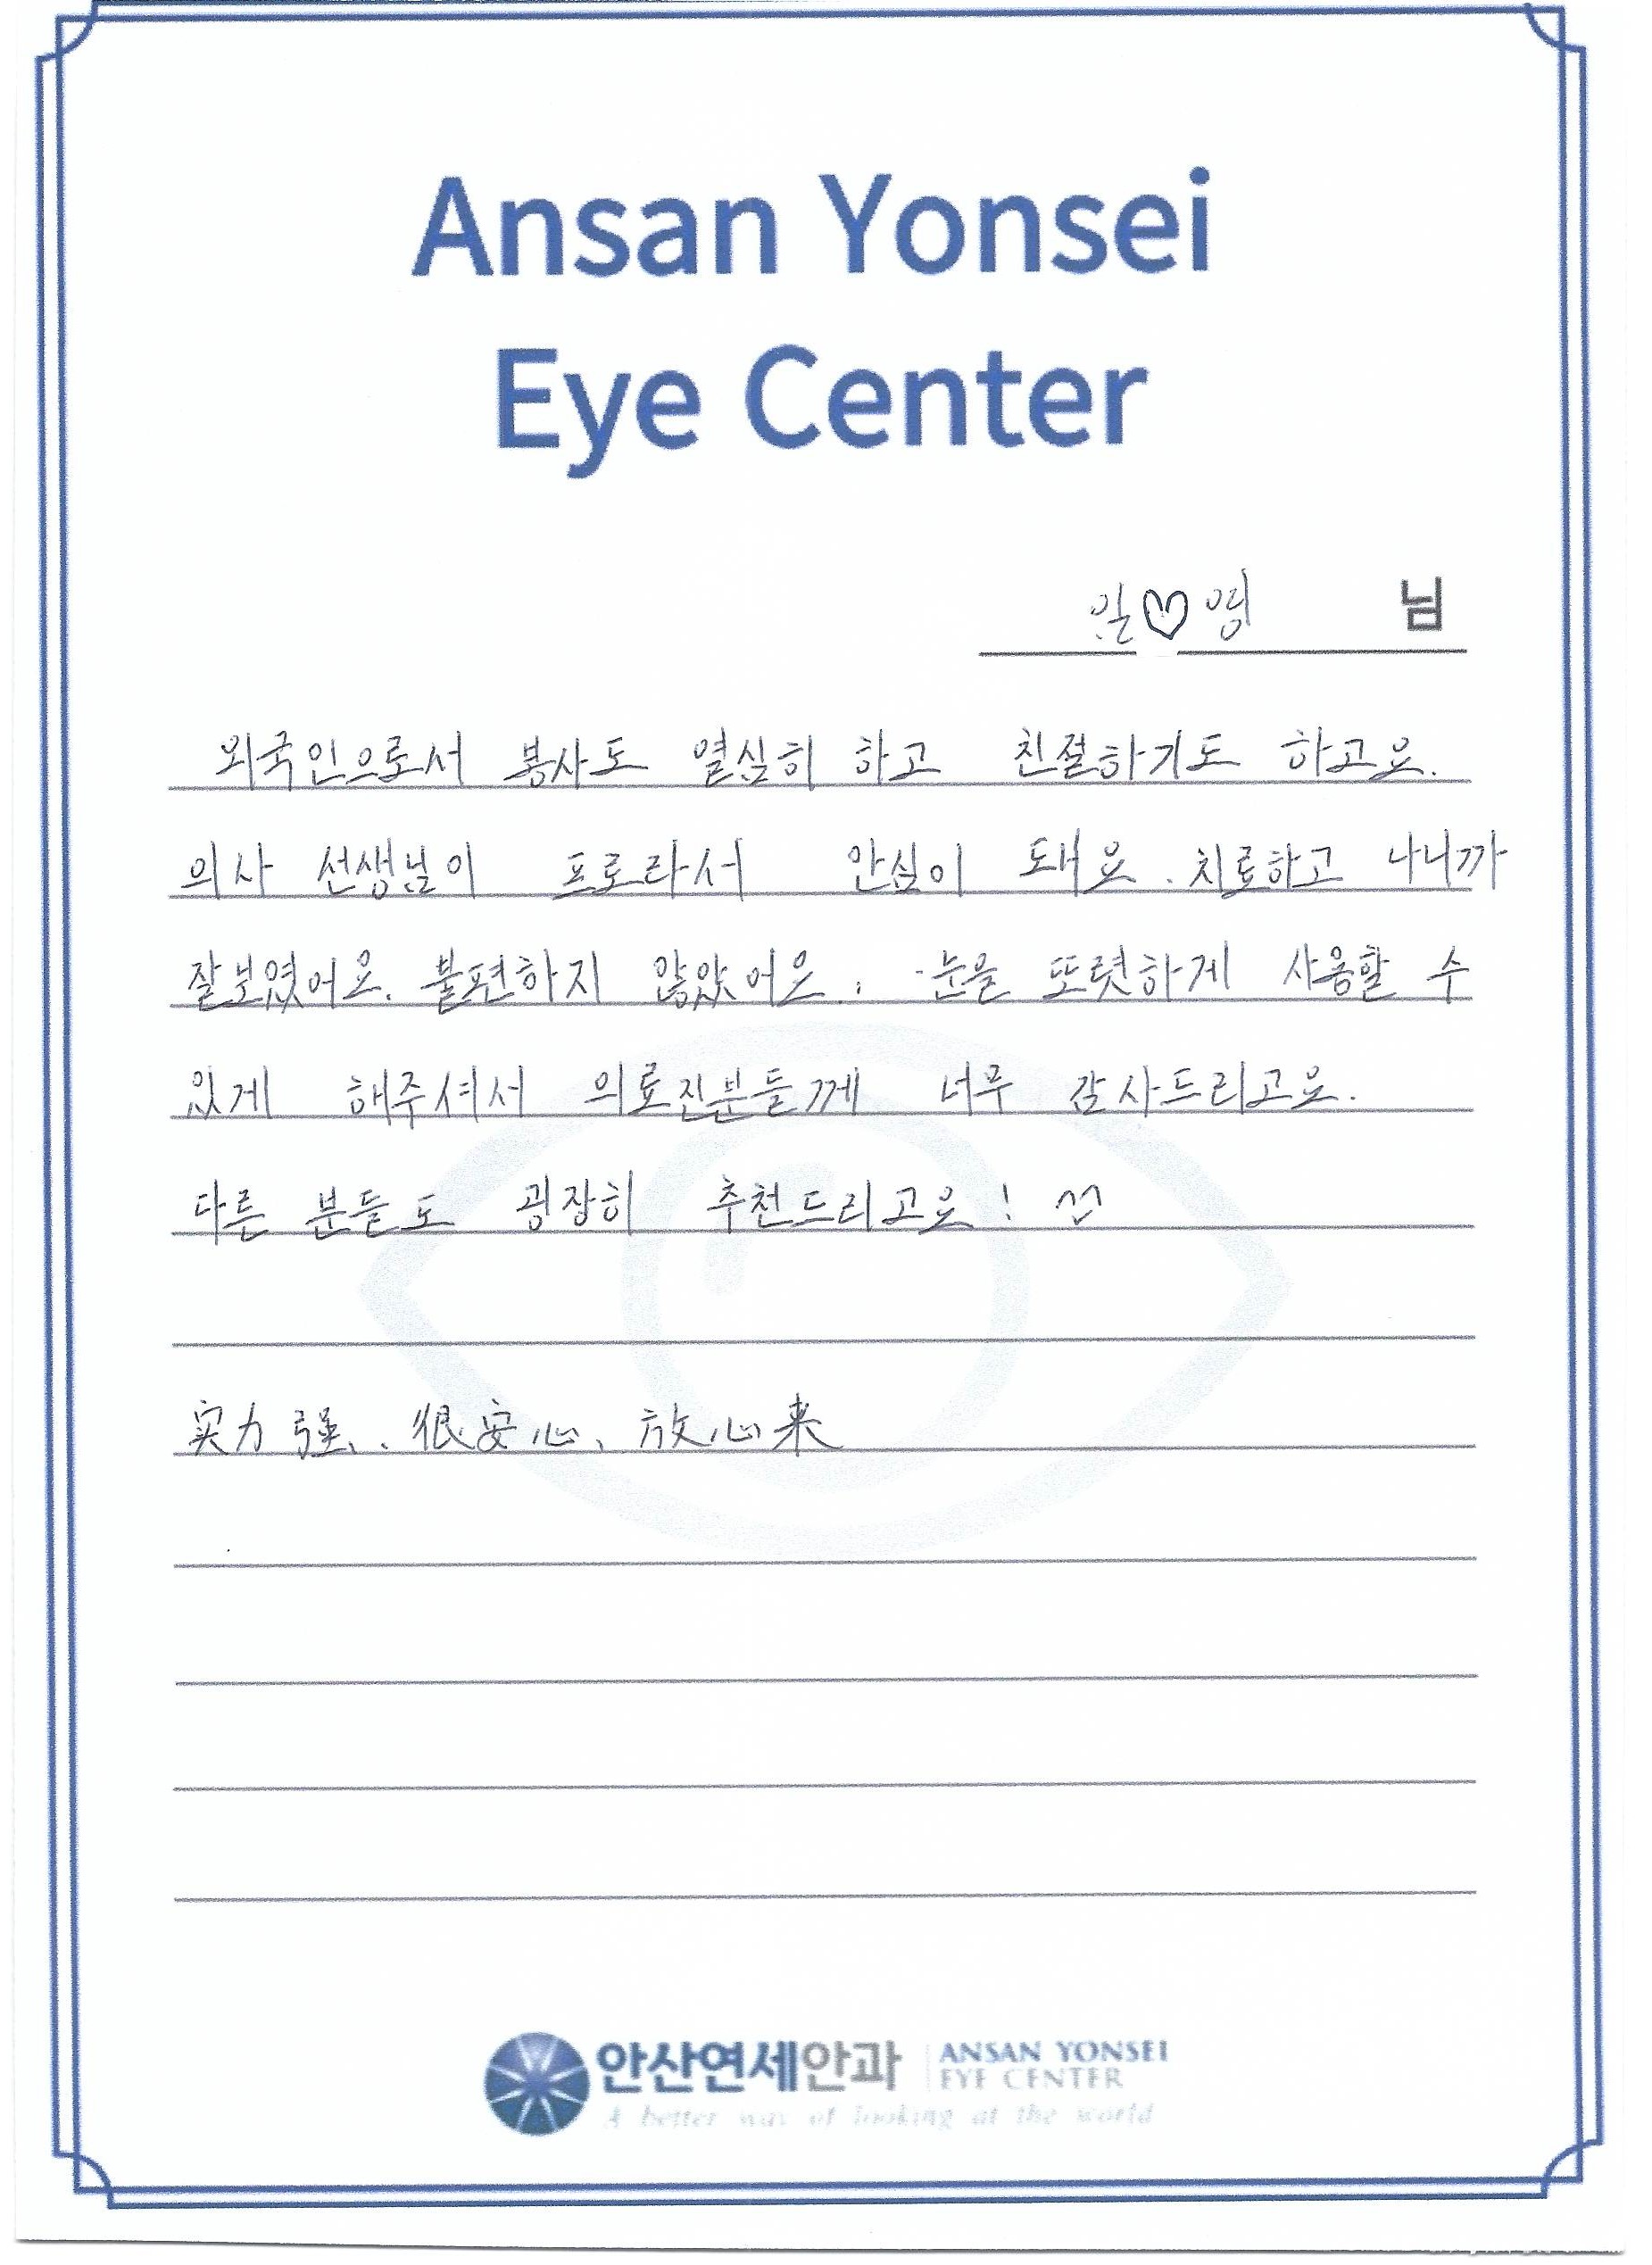 Ansan Yonsei
Eye Center
임♡영 님
외국인으로서 봉사도 열심히 하고 친절하기도 하고요.
의사 선생님이 프로라서 안심이 돼요. 치료하고 나니까
잘보였어요. 불편하지 않았어요. 눈을 또렷하게 사용할 수
있게 해주셔서 의료진분들께 너무 감사드리고요.
다른 분들도 굉장히 추천드리고요!
实力强、很安心、放心来
안산연세안과 ANSAN YONSEI
EYE CENTER
A better way of looking at the world